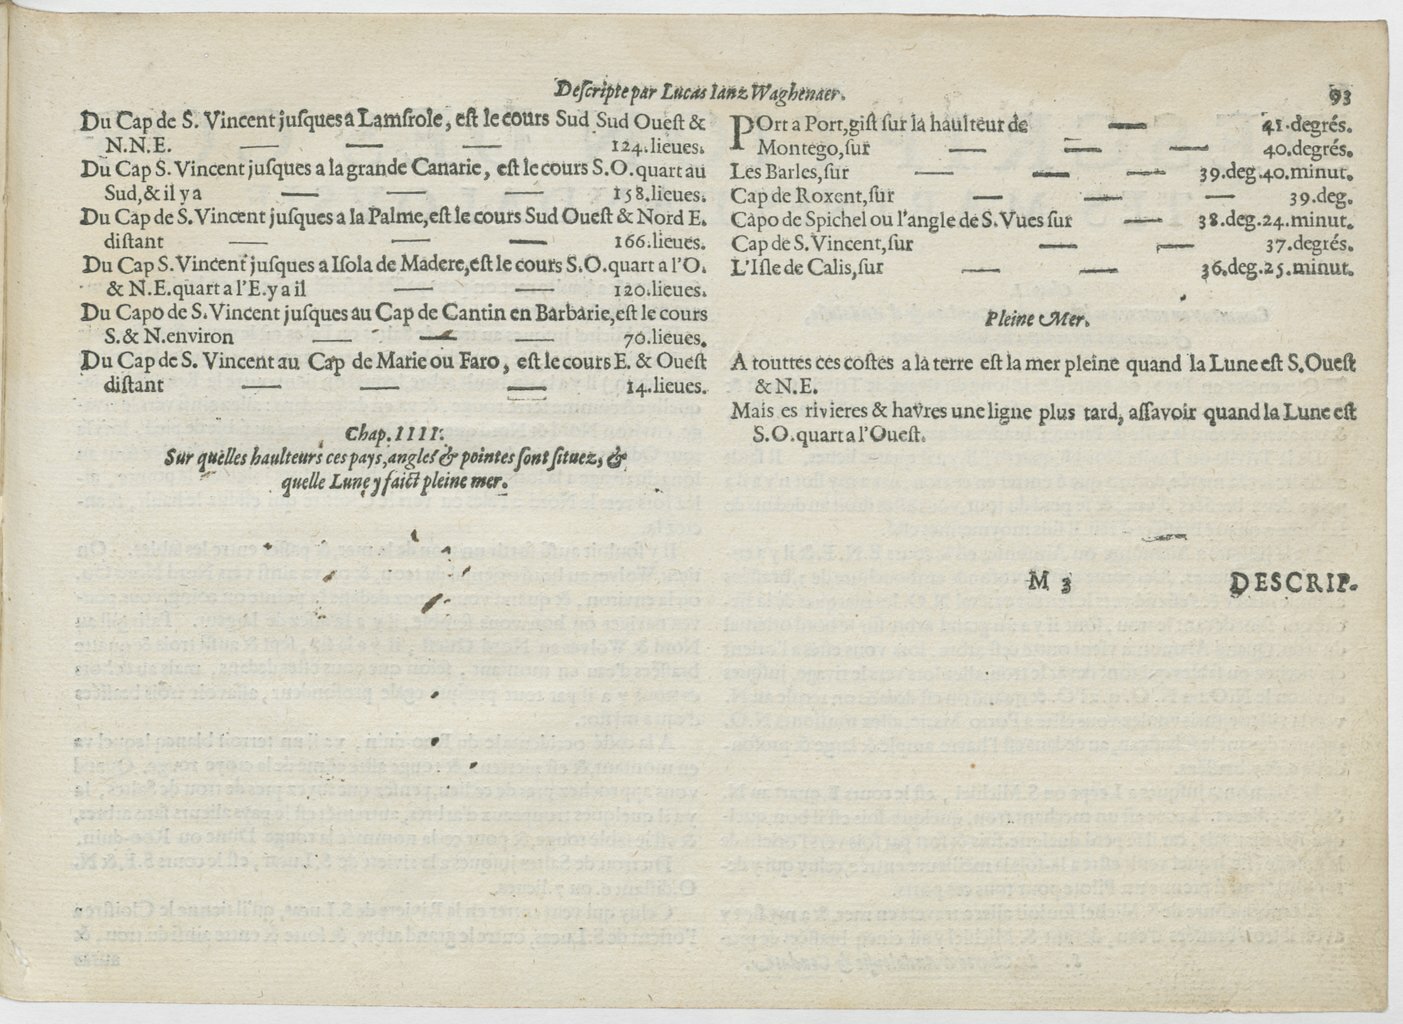 Descripte par Lucas Ianz Waghenaer.
93
Du Cap de S. Vincent jusques a Lamsrole, est le cours Sud Sud Ouest &
N.N.E. — — — 124.lieues.
Du Cap S. Vincent jusques a la grande Canarie, est le cours S.O.quart au
Sud,& il y a — — — 158.lieues.
Du Cap de S. Vincent jusques a la Palme,est le cours Sud Ouest & Nord E.
distant — — — 166.lieues.
Du Cap S. Vincent jusques a Isola de Madere,est le cours S.O.quart a l'O.
& N.E.quart a l'E.y a il — — 120.lieues.
Du Capo de S. Vincent jusques au Cap de Cantin en Barbarie,est le cours
S.& N.environ — — — 70.lieues.
Du Cap de S. Vincent au Cap de Marie ou Faro, est le cours E. & Ouest
distant — — — 14.lieues.
Chap. IIII.
Sur quelles haulteurs ces pays, angles & pointes sont situez, &
quelle Lune y faict pleine mer.
POrt a Port,gist sur la haulteur de — 41.degrés.
Montego,sur — — — 40.degrés.
Les Barles,sur — — — 39.deg.40.minut.
Cap de Roxent,sur — — — 39.deg.
Capo de Spichel ou l'angle de S. Vues sur — 38.deg.24.minut.
Cap de S. Vincent,sur — — 37.degrés.
L'Isle de Calis,sur — — 36.deg.25.minut.
Pleine Mer.
A touttes ces costes a la terre est la mer pleine quand la Lune est S.Ouest
& N.E.
Mais es rivieres & havres une ligne plus tard, assavoir quand la Lune est
S.O.quart a l'Ouest.
M 3
DESCRIP-